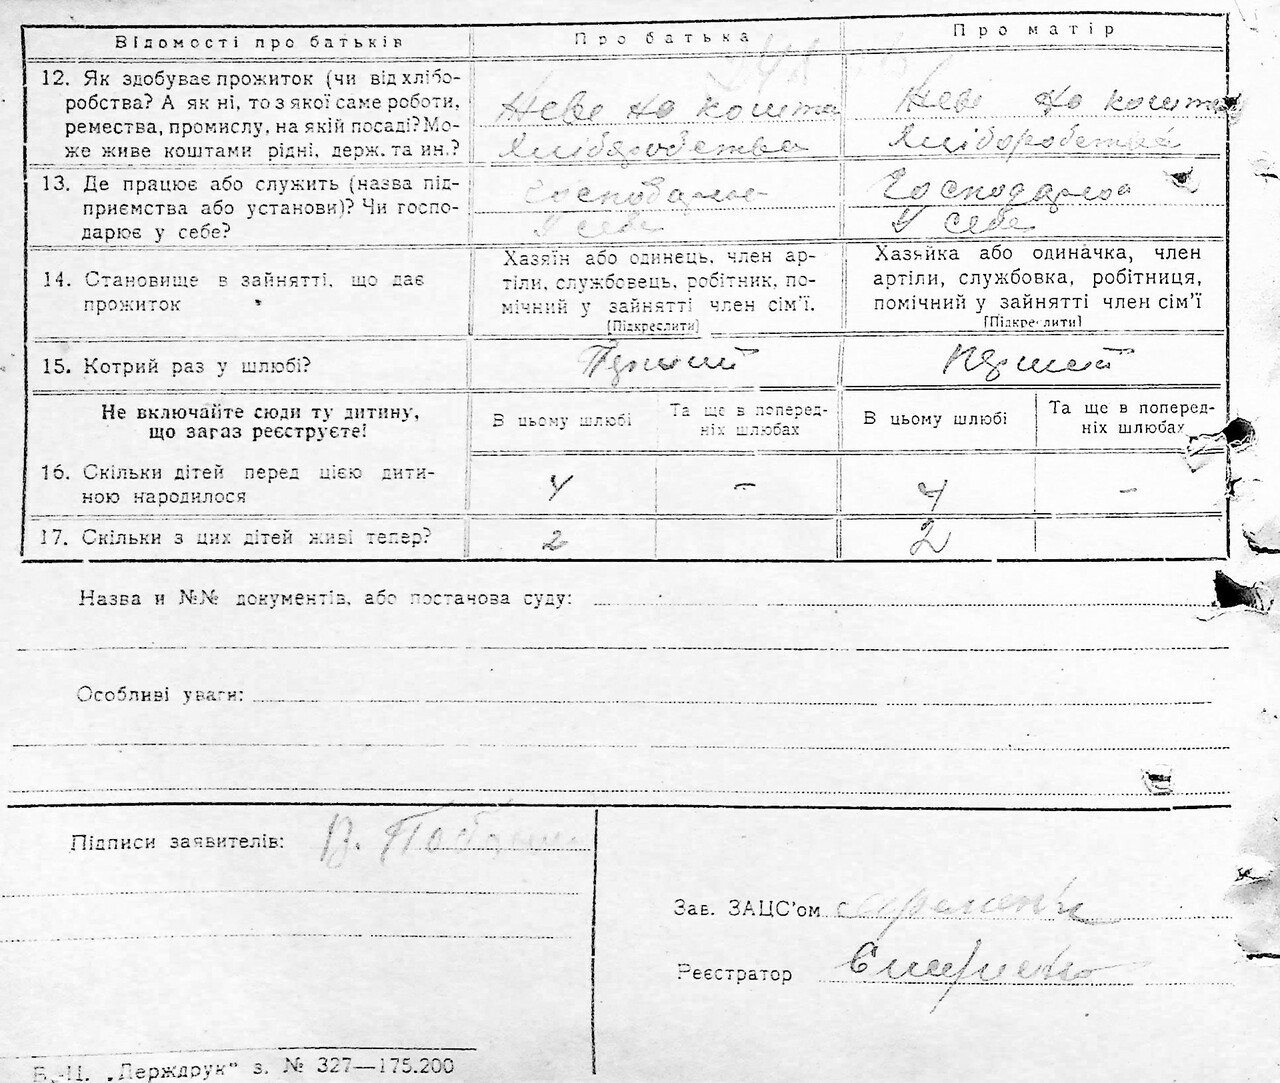 Відомості про батьків
Про батька
Про матір
12. Як здобуває прожиток (чи від хлібо-
робства? А як ні, то з якої саме роботи,
ремества, промислу, на якій посаді? Мо-
же живе коштами рідні, держ. та ин.?
Живе на кошта
хліборобства
Живе на кошта
хліборобства
13. Де працює або служить (назва під-
приємства або установи)? Чи госпо-
дарює у себе?
Господарює
У себе
Господарює
У себе
14. Становище в зайнятті, що дає
прожиток
Хазяїн або одинець, член ар-
тіли, службовець, робітник, по-
мічний у зайнятті член сім'ї.
[Підкреслити]
Хазяйка або одиначка, член
артіли, службовка, робітниця,
помічний у зайнятті член сім'ї
[Підкреслити]
15. Котрий раз у шлюбі?
Перший
Перший
Не включайте сюди ту дитину,
що загаз реєструєте!
В цьому шлюбі
Та ще в поперед-
ніх шлюбах
В цьому шлюбі
Та ще в поперед-
ніх шлюбах
16. Скільки дітей перед цією дити-
ною народилося
4
–
4
–
17. Скільки з цих дітей живі тепер?
2
2
Назва и №№ документів, або постанова суду:
Особливі уваги:
Підписи заявителів:
В.
Зав. ЗАЦС'ом
Реєстратор
Б.-Ц. „Держдрук" з. № 327—175.200